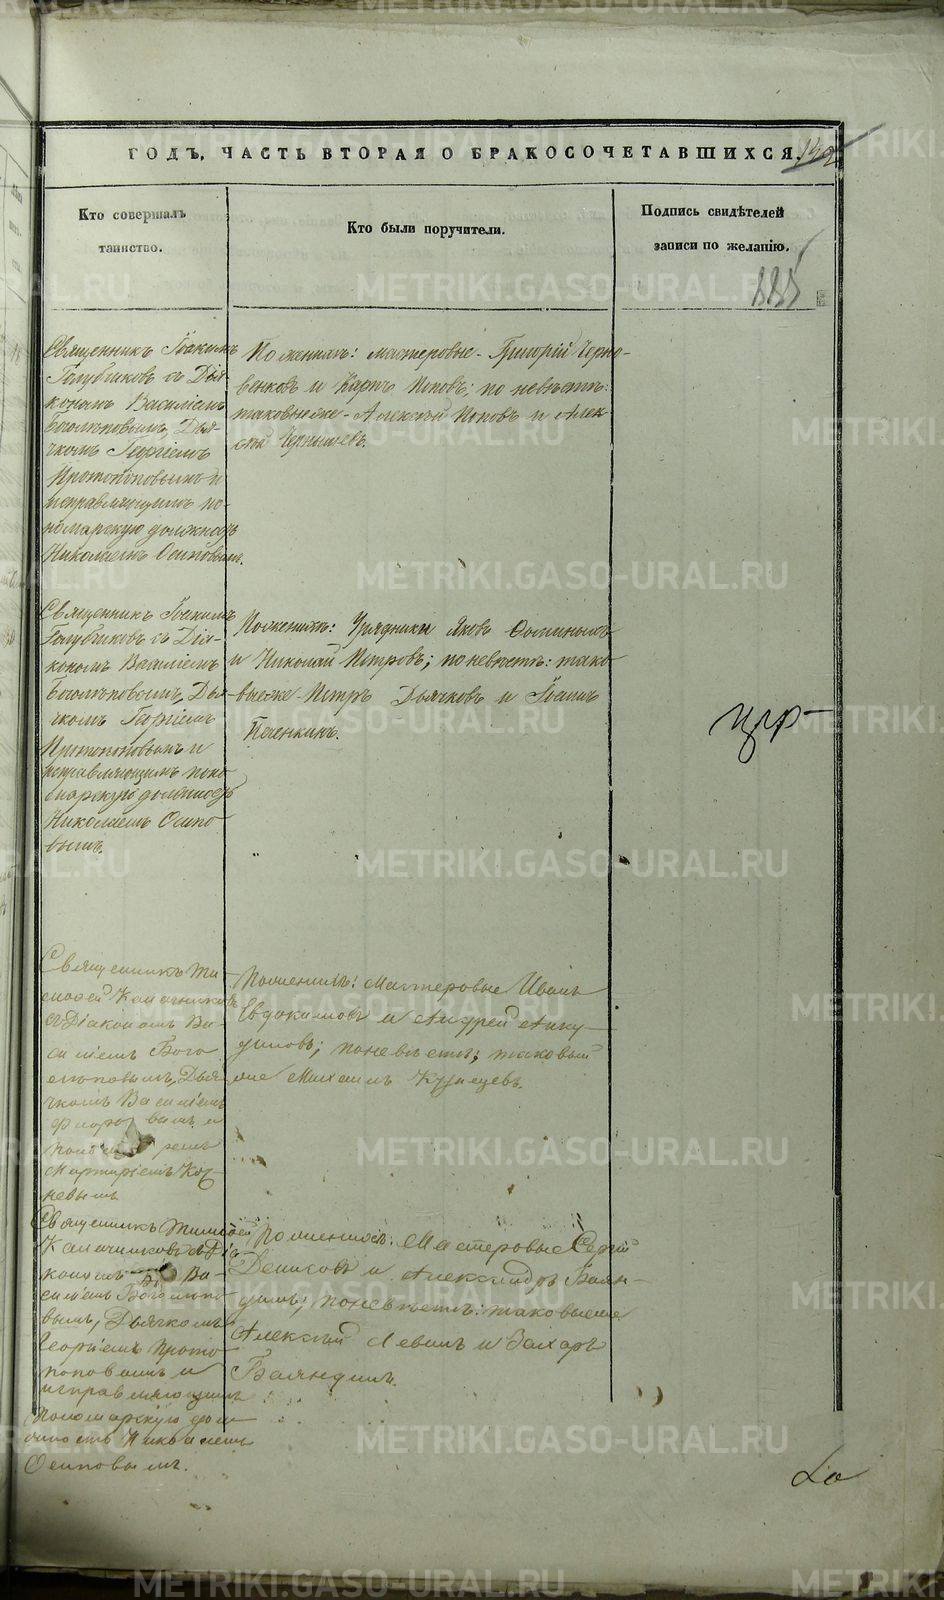 ГОДЪ, ЧАСТЬ ВТОРАЯ О БРАКОСОЧЕТАВШИХСЯ.
Кто совершалъ
таинство.
Кто были поручители.
Подпись свидѣтелей
записи по желанію.
Священникъ Іоакимъ
Голубчиковъ съ Діа-
кономъ Василіемъ
Боголѣповымъ, Дья-
чкомъ Георгіемъ
Протопоповымъ и
исправляющимъ по-
номарскую должность
Николаемъ Осиповымъ.
По женихѣ: мастеровые - Григорій Черно-
венковъ и Карпъ Поповъ; по невѣстѣ:
таковые же - Алексѣй Поповъ и Алек-
сѣй Чернышевъ.
Священникъ Іоакимъ
Голубчиковъ съ Діа-
кономъ Василіемъ
Боголѣповымъ, Дья-
чкомъ Георгіемъ
Протопоповымъ и
исправляющимъ поно-
марскую должность
Николаемъ Осипо-
вымъ.
По женихѣ: Урядники Яковъ Ѳоминыхъ
и Николай Петровъ; по невѣстѣ: тако-
вые же Петръ Дьячковъ и Іоаннъ
Печенкинъ.
Священникъ Ти-
моѳей Калачниковъ
съ Діакономъ Ва-
силіемъ Бого-
лѣповымъ, Дья-
чкомъ Василіемъ
и
Мартиріемъ
По женихѣ: Мастеровые Иванъ
Евдокимовъ и Андрей Анку-
диновъ; по невѣстѣ: таковый
же Михаилъ Кузнецовъ.
Священникъ Тимоѳей
Калачниковъ съ Діа-
кономъ Ва-
силіемъ Боголѣпо-
вымъ, Дьячкомъ
Георгіемъ Прото-
поповымъ и
исправляющимъ
Пономарскую дол-
жность Николаемъ
Осиповымъ.
По женихѣ: Мастеровые Сергій
Денисовъ и Александръ Баян-
динъ; по невѣстѣ: таковые же
Алексѣй Левинъ и Захаръ
Баяндинъ.
METRIKI.GASO-URAL.RU